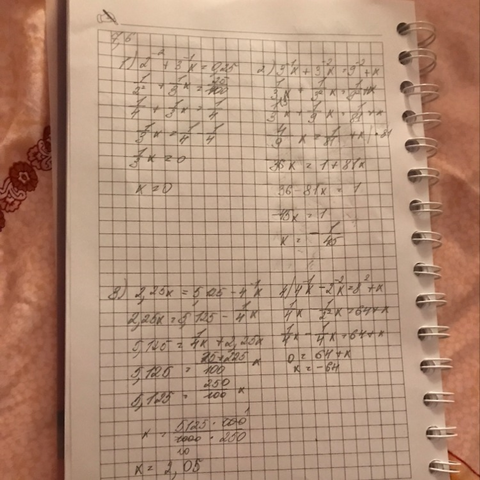 1) 2⁻² + 3⁻¹x = 0,25
1/2² + 1/3 x = 25/100
1/4 + 1/3 x = 1/4
1/3 x = 1/4 - 1/4
1/3 x = 0
x = 0
2) 3⁻¹x + 3⁻²x = 9⁻² + x
1/3 x + 1/3² x = 1/9² + x
1/3 x + 1/9 x = 1/81 + x
4/9 x = 1/81 + x | · 81
36x = 1 + 81x
36 - 81x = 1
-45x = 1
x = - 1/45
3) 2,25x = 5,125 - 4⁻¹x
2,25x = 5,125 - 1/4 x
5,125 = 1/4 x + 2,25x
5,125 = 25+225/100 x
5,125 = 250/100 x
x = 5125 · 100/1000 · 250
x = 2,05
4) 4⁻¹x - 2⁻²x = 8² + x
1/4 x - 1/2² x = 64 + x
1/4 x - 1/4 x = 64 + x
0 = 64 + x
x = -64